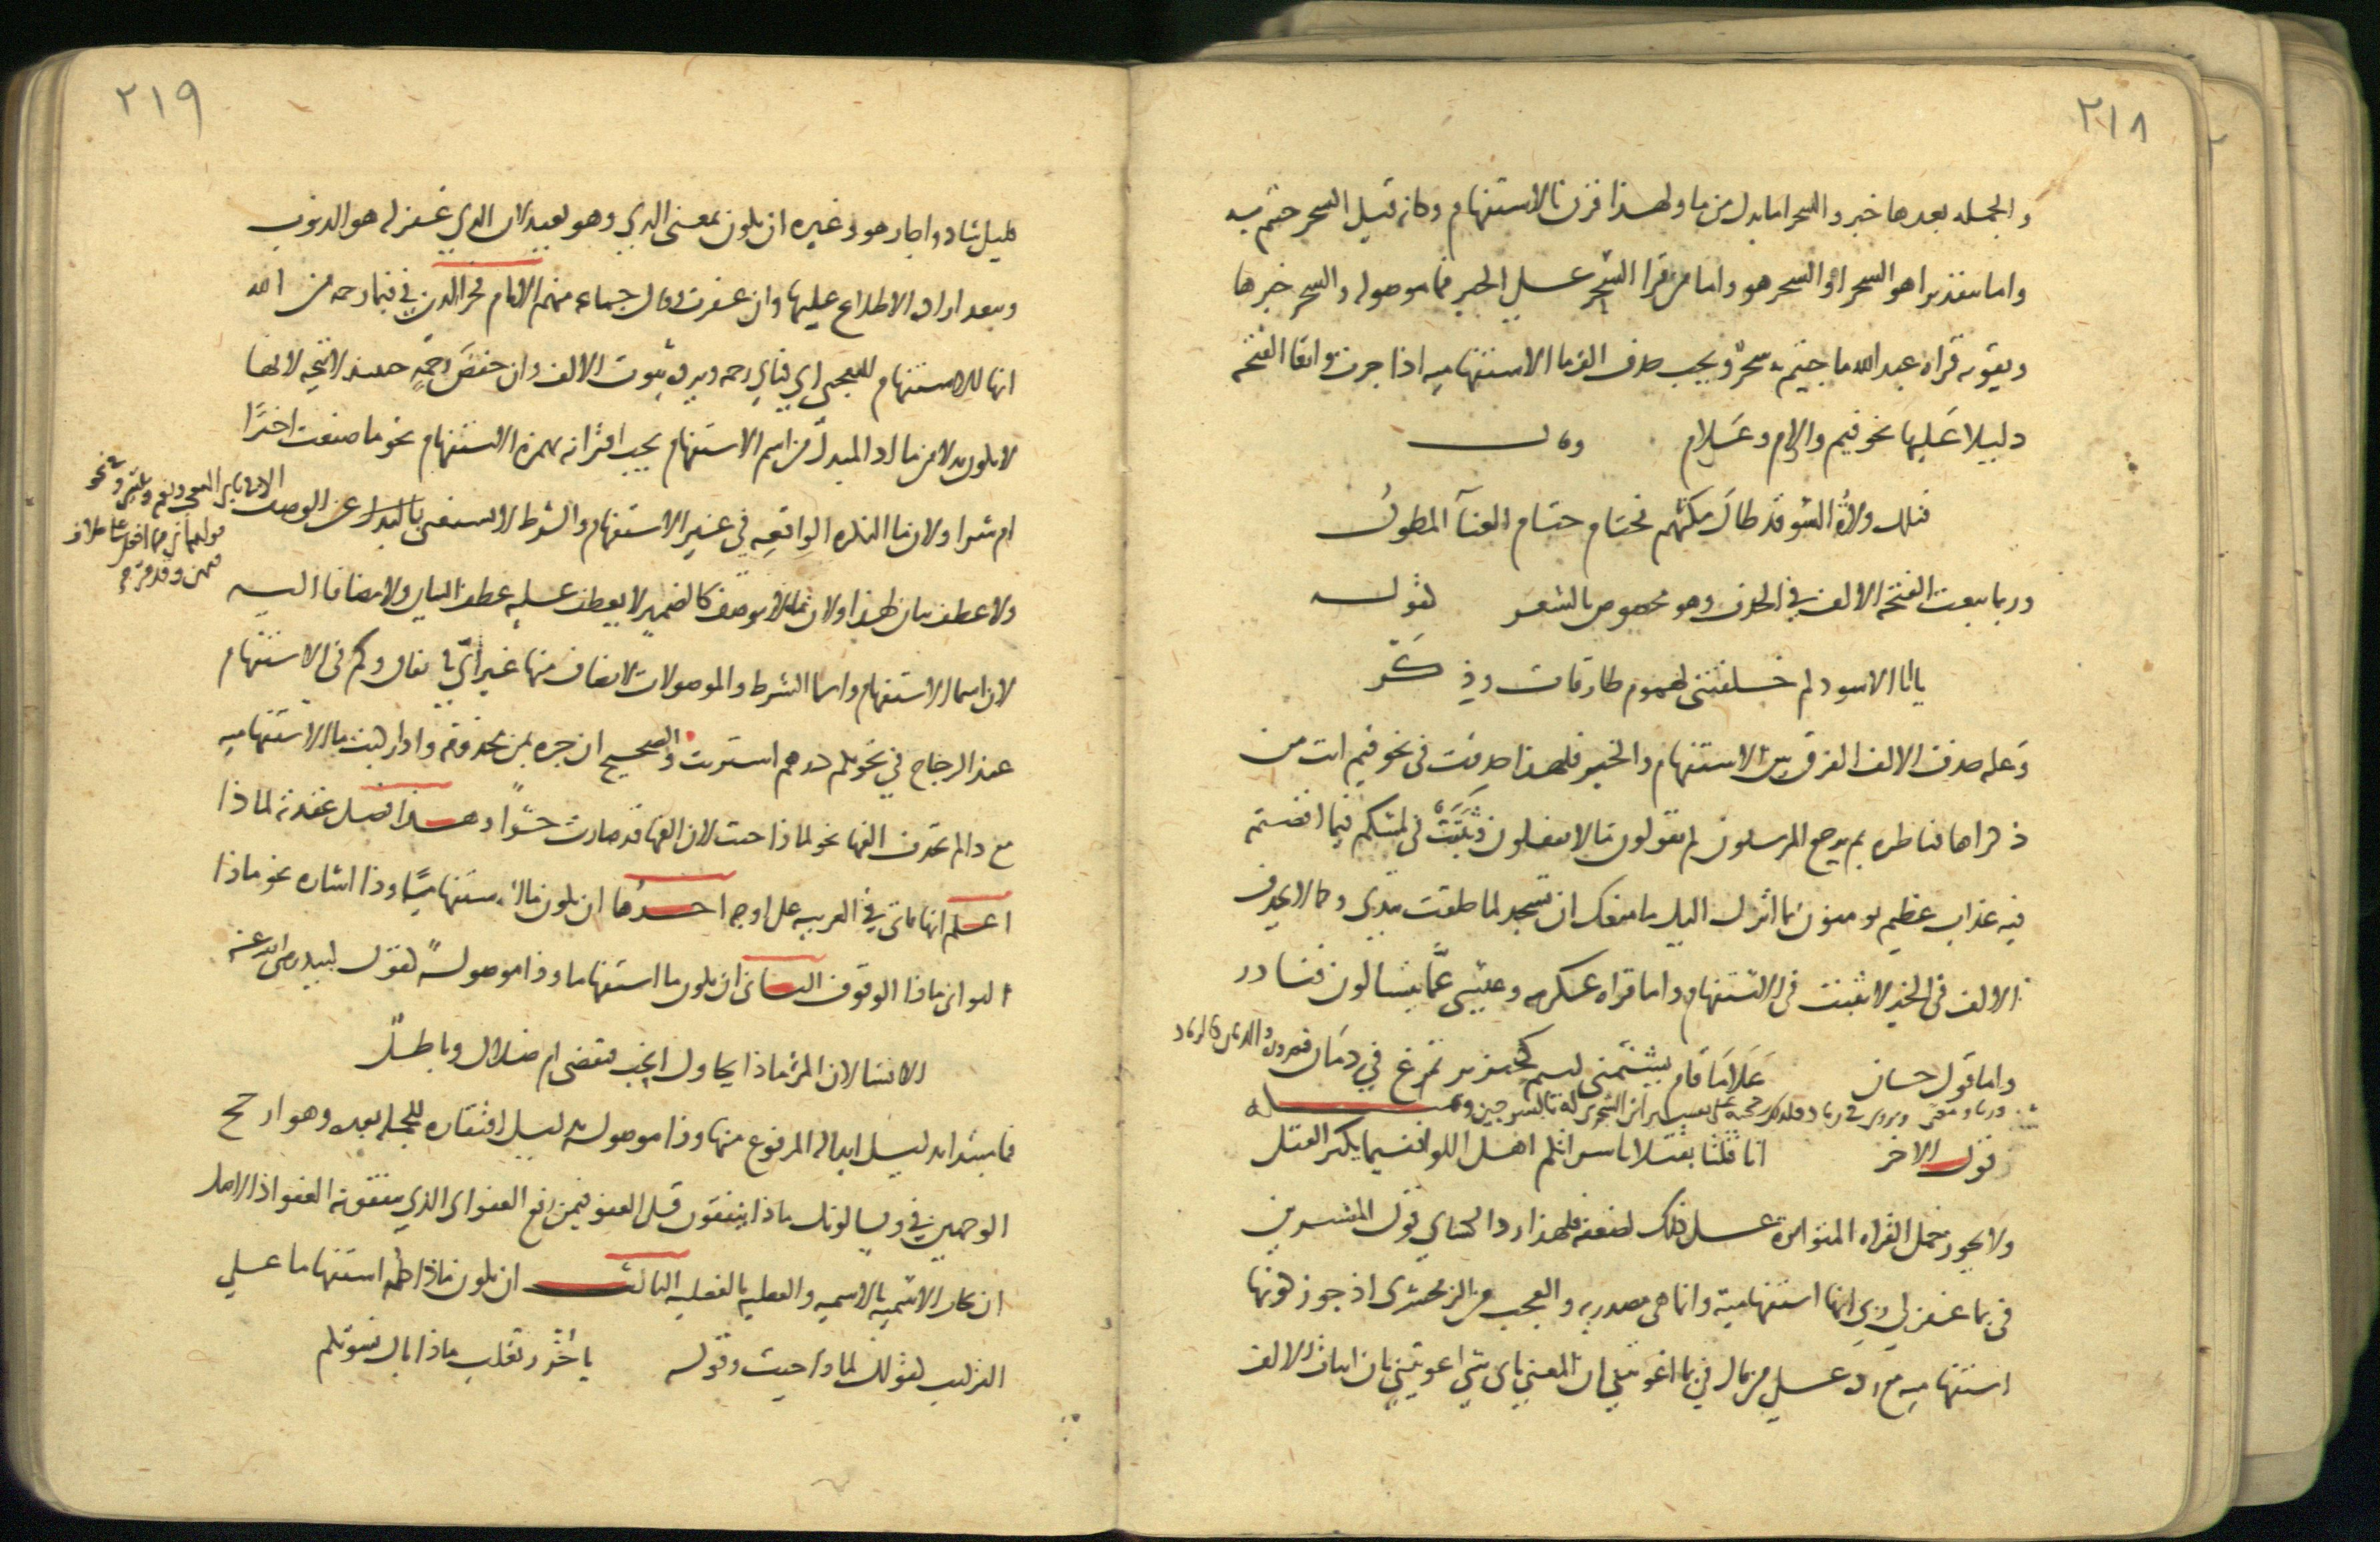 ٢١٨
والجمله بعدها خبر والسحر اما بدل من ما ولهذا قرن بالاستفهام وكانه قيل السحر جئتم به
واما بتقدير اهو السحر او السحر هو واما من قرا السحر علي الخبر فما موصوله والسحر خبرها
ويقويه قراة عبد الله ما جيتم به سحر ويجب حذف الف ما الاستفهاميه اذا جرت وابقا الفتحه
دليلا عليها نحو فيم والام وعلام وقال
فتلك ولاة السو قد طال مكثهم فحتام حتام العنآ المطول
وربما تبعت الفتحة الالف في الحذف وهو مخصوص بالشعر كقوله
يا ابا الاسود لم خلفتني لهموم طارقات وذكر
وعله حذف الالف الفرق بين الاستفهام والخبر فلهذا حذفت في نحو فيم انت من
ذكراها فناظره بم يرجع المرسلون لم تقولون ما لا تفعلون وثبتت في لمسكم فيما افضتم
فيه عذاب عظيم يومنون بما انزل اليك ما منعك ان تسجد لما خلقت بيدي وكما لا تحذف
الالف في الخبر لا تثبت في الاستفهام واما قراة عكرمه وعيسى عما يتسالون فنادر
واما قول حسان علاما قام يشتمني لئيم كخنزير تمرغ في دمان فـ والدمان كالرماد
وزنا ومعنى ويروى في رماد فلذلك رجحته على تفسير ابن الشجري له بالسرجين ومثله
قول الاخر انا قتلنا بقتلانا سراتكم اهل اللوا ففيما يكثر القتل
ولا يجوز حمل القراه المتواتره علي ذلك لضعفه فلهذا رد الكساي قول المفسرين
في بما غفر لي ربي انها استفهامية وانما هي مصدريه والعجب من الزمخشري اذ جوز كونها
استفهاميه مع رده علي من قال في بما اغويتني ان المعني باي شي اغويتني بان اثبات الالف
٢١٩
قليل شاذ واجاز هو وغيره ان يكون بمعنى الذي وهو بعيد لان الذي غفر له هو الذنوب
ويبعد ارادة الاطلاع عليها وان غفرت وقال جماعه منهم الامام فخر الدين في فبما رحمة من الله
انها للاستفهام التعجبي اي فباي رحمة ويرده ثبوت الالف وان خفض رحمة حينئذ لا يتجه لانها
لا يكون بدلا من ما اذ المبدل من اسم الاستفهام يجب اقترانه بهمزة الاستفهام نحو ما صنعت اخيرا
ام شرا ولان ما النكره الواقعه في غير الاستفهام والشرط لا تستغنى عن الوصف الا في بابي التعجب ونعم وبئس
ولا عطف بيان لهذا ولان ما لا يوصف كالضمير لا يعطف عليه عطف البيان ولا مضافا اليه
لان اسما الاستفهام واسما الشرط والموصولات لا يضاف منها غير اي باتفاق وكم في الاستفهام
عند الزجاج في نحو بكم درهم اشتريت والصحيح ان جره بمن محذوفه واذا ركبت ما الاستفهاميه
مع ذا لم تحذف الفها نحو لماذا جئت لان الفها قد صارت حشوا وهذا فصل عقدته لماذا
اعلم انها تاتي في العربيه على اوجه احدها ان يكون ما استفهاميا وذا اشاره نحو ماذا
التواني ماذا الوقوف الثاني ان يكون ما استفهاما وذا موصولة كقول لبيد رضي الله عنه
الا تسالان المرء ماذا يحاول انحب فيقضى ام ضلال وباطل
فما مبتدا بدليل ابداله المرفوع منها وذا موصول بدليل افتقاره للجمله بعده وهو ارجح
الوجهين في ويسالونك ماذا ينفقون قل العفو فيمن رفع العفو اي الذي ينفقونه العفو اذ الاصل
ان تجاب الاسميه بالاسميه والفعليه بالفعليه الثالث ان يكون ماذا كله استفهاما علي
التركيب كقولك لماذا جيت وقوله يا خزر تغلب ماذا بال نسوتكم